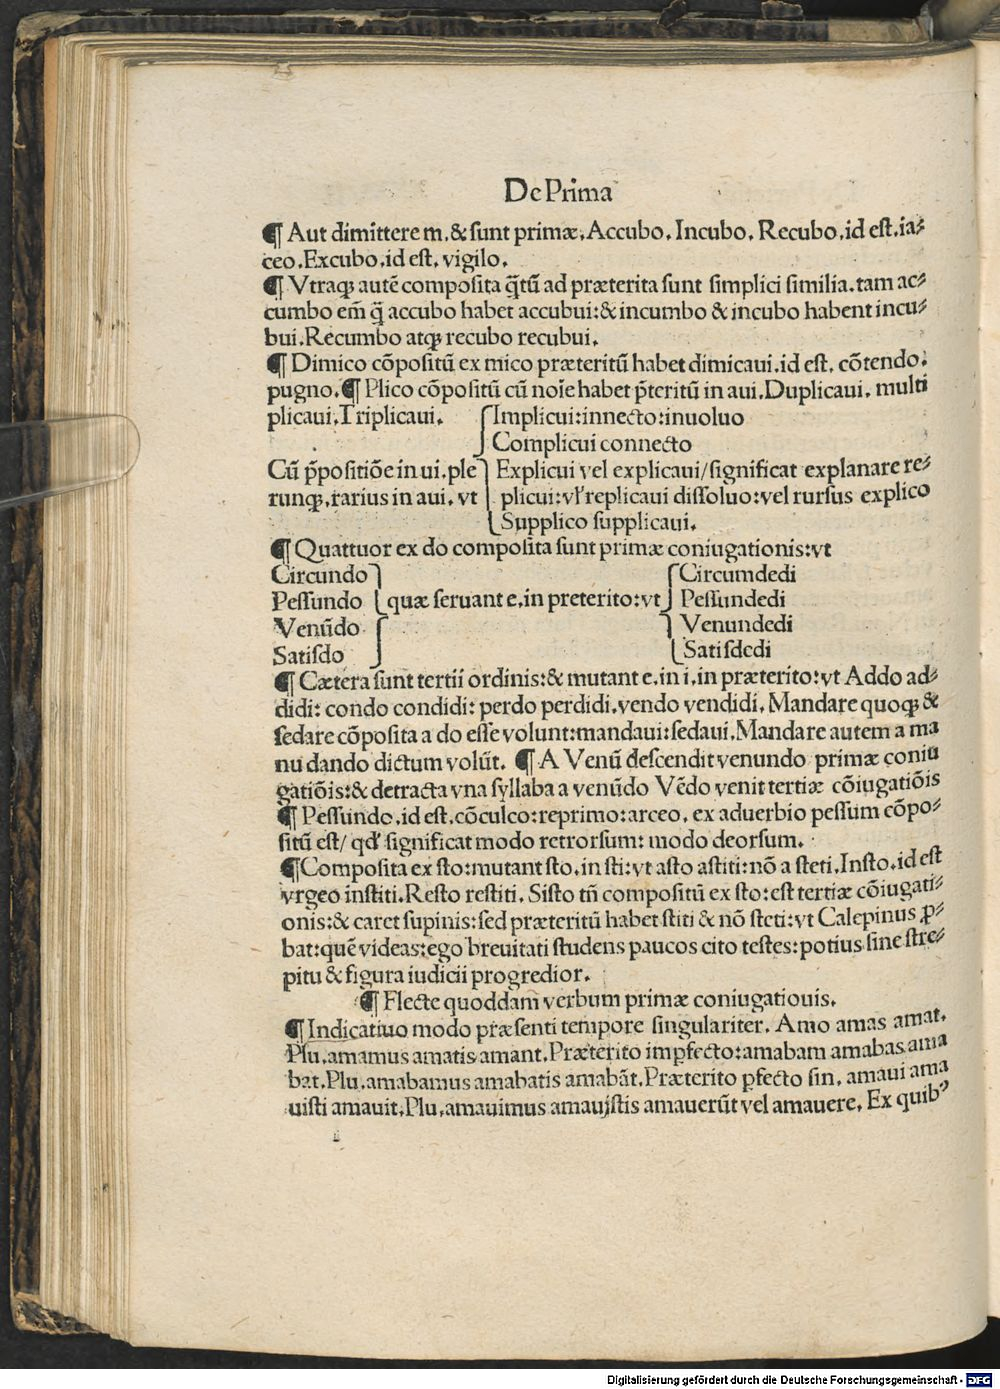 De Prima
¶ Aut dimittere m, & sunt primæ. Accubo. Incubo. Recubo, id est, ia⸗
ceo. Excubo, id est, vigilo.
¶ Vtraqꝫ autē composita q̄tū ad præterita sunt simplici similia. tam ac⸗
cumbo em̄ q̄ accubo habet accubui: & incumbo & incubo habent incu⸗
bui. Recumbo atqꝫ recubo recubui.
¶ Dimico cōpositū ex mico præteritū habet dimicaui. id est, cōtendo:
pugno. ¶ Plico cōpositū cū noīe habet p̄teritū in aui. Duplicaui, multi
plicaui. Triplicaui. Implicui: innecto: inuoluo
Complicui connecto
Cū p̄positiōe in ui. ple Explicui vel explicaui/ significat explanare re⸗
runqꝫ, rarius in aui, vt plicui: vl' replicaui dissoluo: vel rursus explico
Supplico supplicaui.
¶ Quattuor ex do composita sunt primæ coniugationis: vt
Circundo Circumdedi
Pessundo quæ seruant e, in preterito: vt Pessundedi
Venūdo Venundedi
Satisdo Satisdedi
¶ Cætera sunt tertii ordinis: & mutant e, in i, in præterito: vt Addo ad⸗
didi: condo condidi: perdo perdidi. vendo vendidi. Mandare quoqꝫ &
sedare cōposita a do esse volunt: mandaui: sedaui. Mandare autem a ma
nu dando dictum volūt. ¶ A Venū descendit venundo primæ coniu
gatiōis: & detracta vna syllaba a venūdo Vēdo venit tertiæ cōiugatiōis
¶ Pessundo. id est, cōculco: reprimo: arceo, ex aduerbio pessum cōpo⸗
sitū est/ qd' significat modo retrorsum: modo deorsum.
¶ Composita ex sto: mutant sto, in sti: vt asto astiti: nō a steti. Insto. id est
vrgeo institi. Resto restiti. Sisto tñ compositū ex sto: est tertiæ cōiugati⸗
onis: & caret supinis: sed præteritū habet stiti & nō steti: vt Calepinus ꝓ⸗
bat: quē videas: ego breuitati studens paucos cito testes: potius sine stre⸗
pitu & figura iudicii progredior.
¶ Flecte quoddam verbum primæ coniugatiouis.
¶ Indicatiuo modo præsenti tempore singulariter. Amo amas amat.
Plu. amamus amatis amant. Præterito imꝑfecto: amabam amabas ama
bat. Plu. amabamus amabatis amabāt. Præterito ꝑfecto sin, amaui ama
uisti amauit. Plu. amauimus amauistis amauerūt vel amauere. Ex quibꝰ
Digitalisierung gefördert durch die Deutsche Forschungsgemeinschaft - DFG